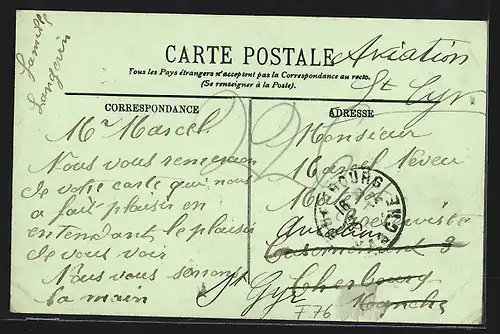 Famille
Langevin
CARTE POSTALE
Aviation
St Cyr
Tous les Pays étrangers n'acceptent pas la Correspondance au recto.
(Se renseigner à la Poste).
CORRESPONDANCE
Mr Marcel
Nous vous remercions
de votre carte qui nous
a fait plaisir en
entendant le plaisir
de vous voir
Nous vous serrons
la main
ADRESSE
Monsieur
Marcel Neveu
Aviation
3
Cherbourg
St Cyr
Manche
F76